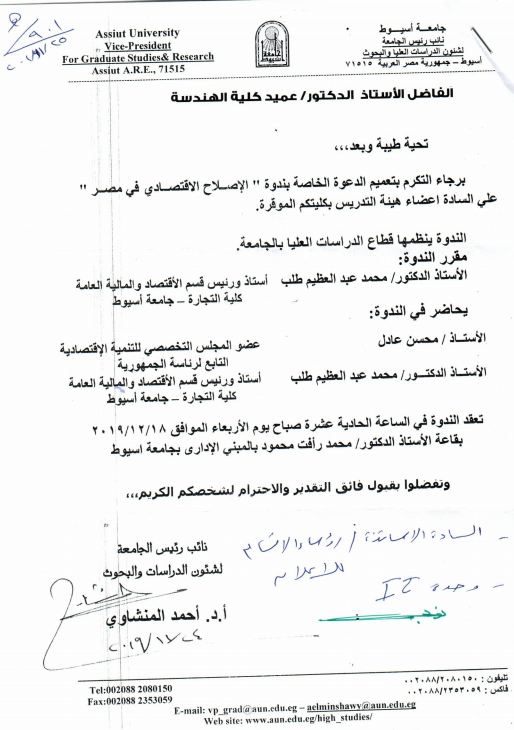 Assiut University
Vice-President
For Graduate Studies& Research
Assiut A.R.E., 71515
جامعـة أسيـوط
نائب رئيس الجامعة
لشئون الدراسات العليا والبحوث
أسيوط – جمهورية مصر العربية ٧١٥١٥
الفاضل الأستاذ الدكتور/ عميد كلية الهندسة
تحية طيبة وبعد،،،
برجاء التكرم بتعميم الدعوة الخاصة بندوة " الإصـلاح الاقتصـادي في مصـر "
علي السادة اعضاء هيئة التدريس بكليتكم الموقرة.
الندوة ينظمها قطاع الدراسات العليا بالجامعة.
مقرر الندوة:
الأستاذ الدكتور/ محمد عبد العظيم طلب أستاذ ورئيس قسم الأقتصاد والمالية العامة
كلية التجارة – جامعة أسيوط
يحاضر في الندوة:
الأستـاذ / محسن عادل عضو المجلس التخصصي للتنمية الإقتصادية
التابع لرئاسة الجمهورية
الأستاذ الدكتـور/ محمد عبد العظيم طلب أستاذ ورئيس قسم الأقتصاد والمالية العامة
كلية التجارة – جامعة أسيوط
تعقد الندوة في الساعة الحادية عشرة صباح يوم الأربعاء الموافق ٢٠١٩/١٢/١٨
بقاعة الأستاذ الدكتور/ محمد رأفت محمود بالمبني الإدارى بجامعة اسيوط
وتفضلوا بقبول فائق التقدير والاحترام لشخصكم الكريم،،،
- السادة الاساتذة / رؤساء الاقسام
للإعلام
- وحدة IT
نائب رئيس الجامعة
لشئون الدراسات والبحوث
أ.د. أحمد المنشاوي
Tel:002088 2080150
Fax:002088 2353059
تليفون : ٠٠٢٠٨٨/٢٠٨٠١٥٠
فاكس : ٠٠٢٠٨٨/٢٣٥٣٠٥٩
E-mail: vp_grad@aun.edu.eg – aelminshawy@aun.edu.eg
Web site: www.aun.edu.eg/high_studies/